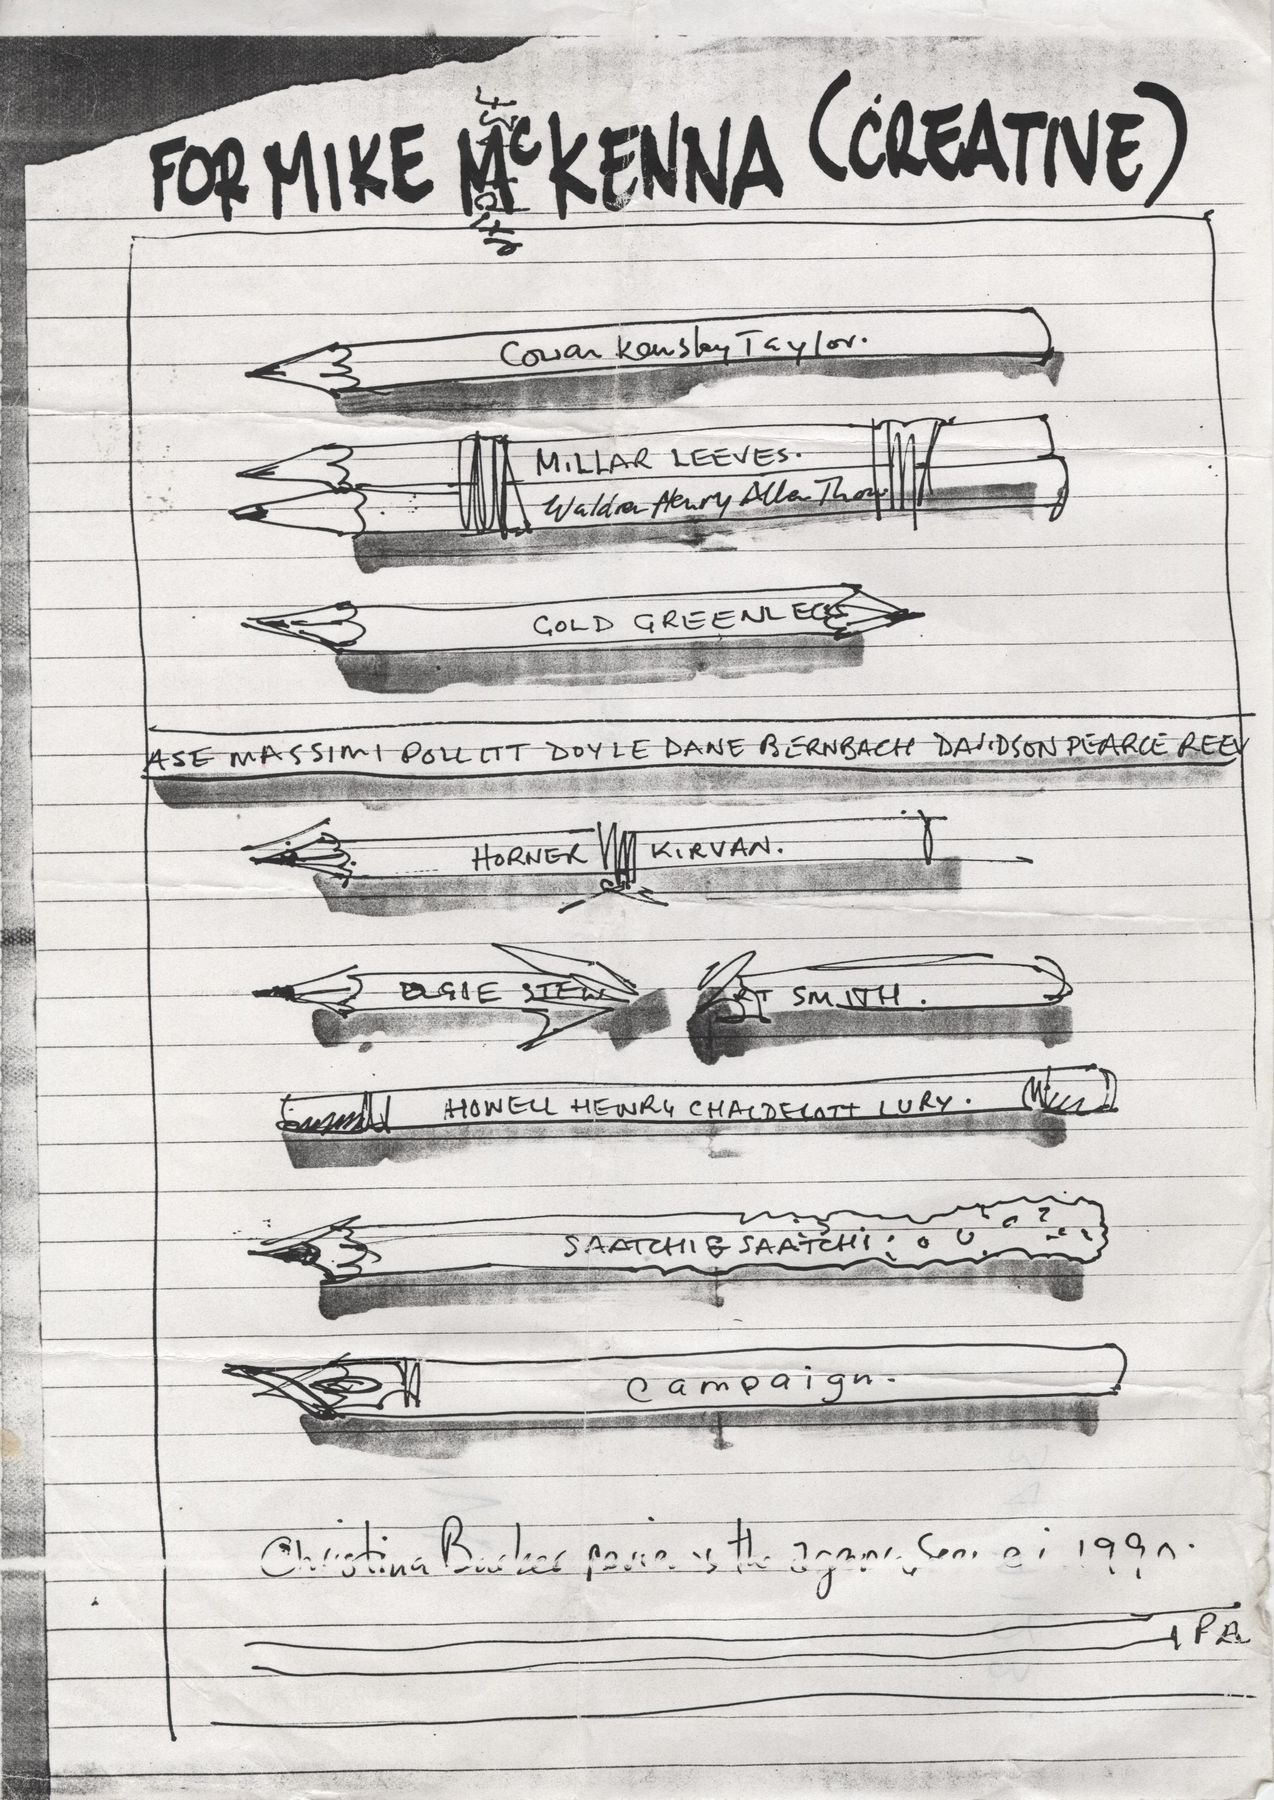 FOR MIKE McKENNA (CREATIVE)
Cowan Kemsley Taylor.
MILLAR LEEVES.
Waldron Henry Allen Thom
GOLD GREENLEES
ASE MASSIMI POLLITT DOYLE DANE BERNBACH DAVIDSON PEARCE REEV
HORNER KIRVAN.
ELGIE STEW RT SMITH.
HOWELL HENRY CHALDECOTT LURY.
SAATCHI & SAATCHI
Campaign.
Christina Barker the agency scene 1990.
IPA